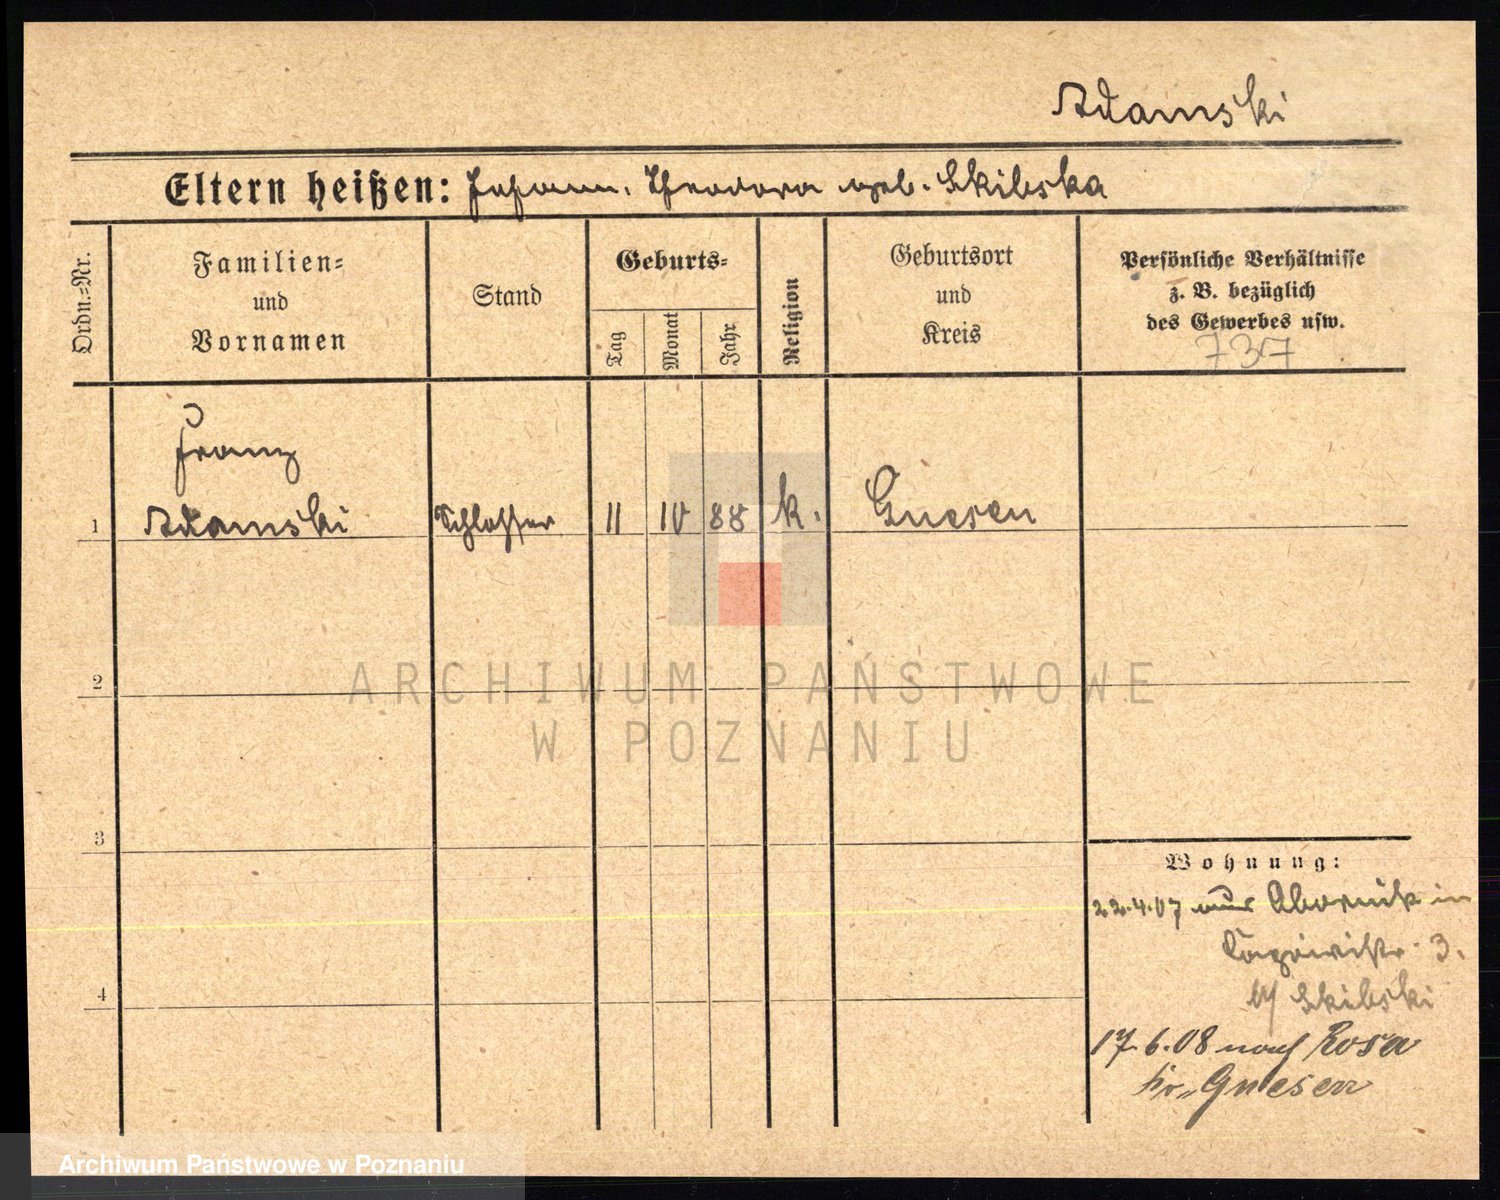 Adamski
Eltern heißen: Johann, Theodora geb. Skibska
Ordn.=Nr.
Familien=
und
Vornamen
Stand
Geburts=
Tag
Monat
Jahr
Religion
Geburtsort
und
Kreis
Persönliche Verhältnisse
z. B. bezüglich
des Gewerbes usw.
737
Franz
1 Adamski Schlosser 11 10 88 k. Gnesen
2
ARCHIWUM PAŃSTWOWE
W POZNANIU
3
Wohnung:
22.4.07 aus Obornik in
3.
b/ Skibski
4
17.6.08 nach Rosa
Kr. Gnesen
Archiwum Państwowe w Poznaniu